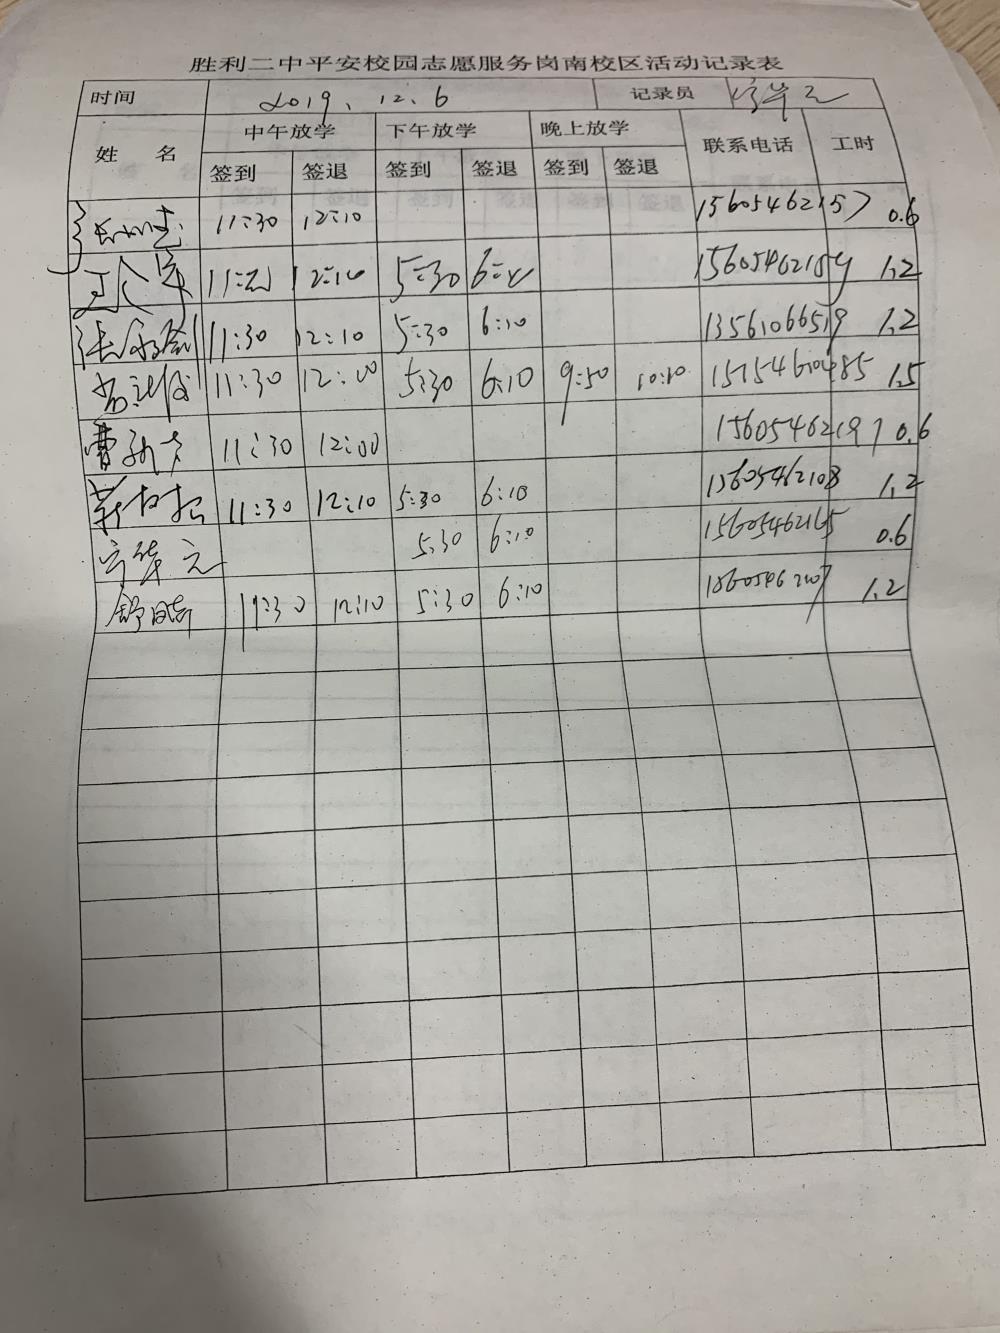 胜利二中平安校园志愿服务岗南校区活动记录表
时间 2019.12.6 记录员
姓名 中午放学 下午放学 晚上放学 联系电话 工时
签到 签退 签到 签退 签到 签退
11:30 12:10 15605462157 0.6
12:10 5:30 1.2
11:30 12:10 5:30 6:10 13561066519 1.2
11:30 12:00 5:30 6:10 9:50 10:10 1.5
曹 11:30 12:00 15605462197 0.6
11:30 12:10 5:30 6:10 15605462108 1.2
元 5:30 6:10 15605462165 0.6
11:30 12:10 5:30 6:10 1.2